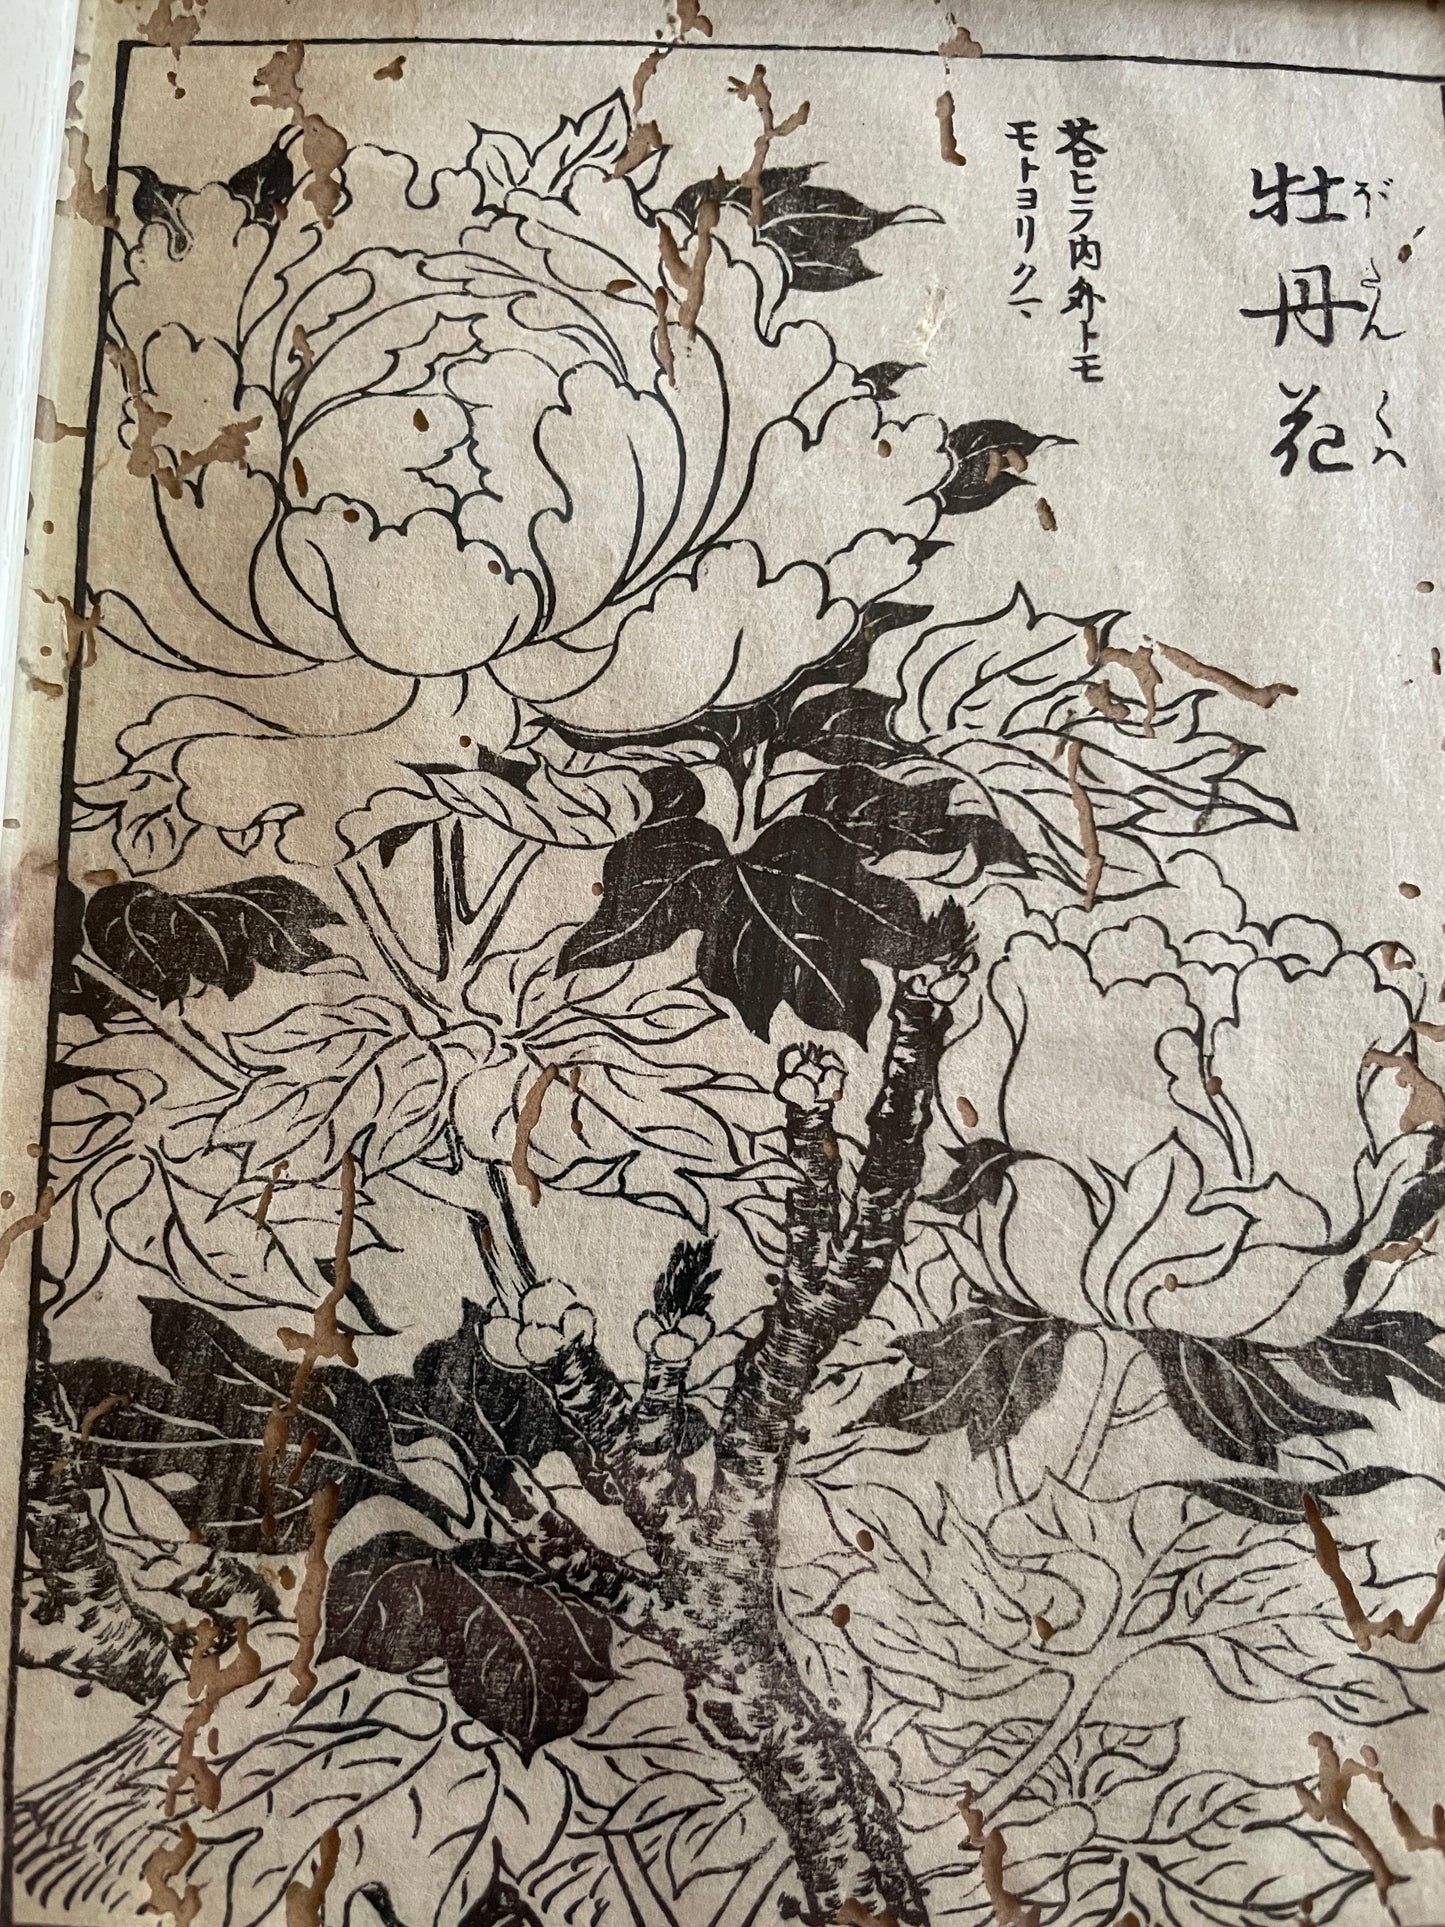 牡丹花
ぼたんくは
苔ヒラ内外トモ
モトヨリクマ